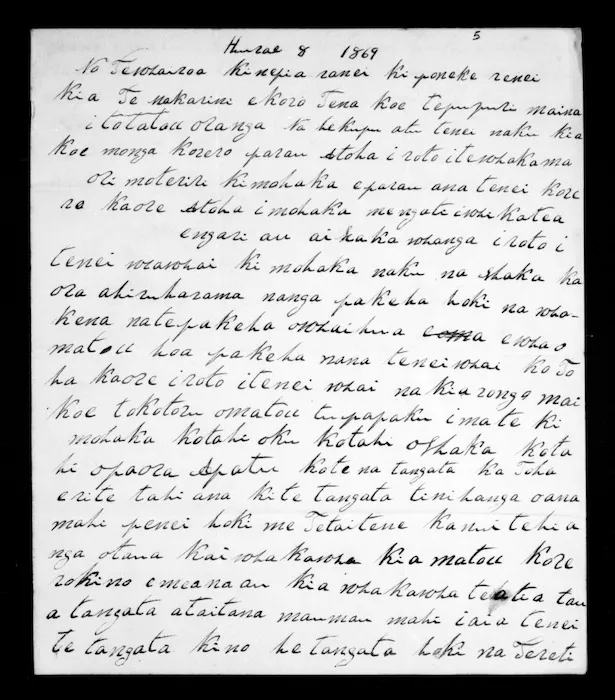 5
Hurae 8 1869
No Tewhairoa kinepia ranei ki poneke renei
kia Te makarini ekoro Tena koe tepupuri maina
i totatou oranga Na he kupu atu tenei naku kia
koe monga korero parau stoha i roto itewhakama
ori moteriri kimohaka eparau ana tenei kore
ro kaore stoha i mohaka mengati iwhi katea
engari au ai haka whanga iroto i
tenei whawhai ki mohaka naku na shaka ka
ora ahiruharama nanga pakeha hoki na wha-
kena natepakeha owhaihua ewhao
matou hoa pakeha nana teneiwhai ko To
ha kaore iroto itenei whai na kia rongo mai
koe tokotoru omatou tupapaku imate ki
mohaka kotahi oku kotahi oshaka kota
hi opaora Apatu kotena tangata ka Toha
erite tahi ana kite tangata tinihanga oana
mahi penei hoki me Tetaitene kanui tehia
nga otana kaiwhakawha kia matou kore
rokino emeana au kia whakawha tau
a tangata ataitana maumau mahi iaia tenei
te tangata kino he tangata hoki na Tereti